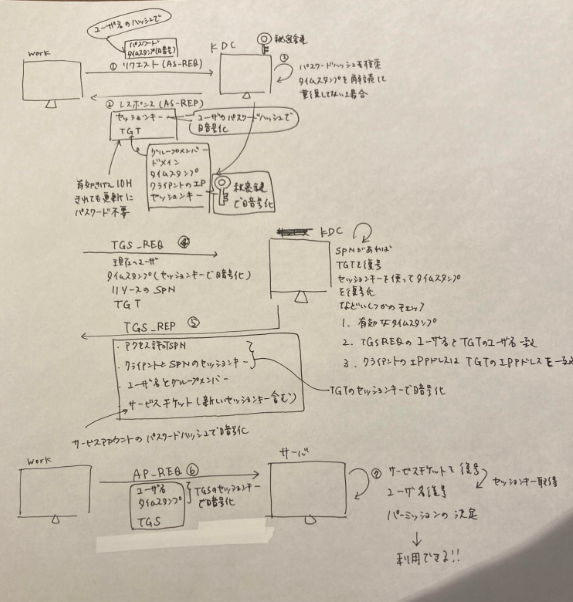 ユーザ名のハッシュで
パスワード
タイムスタンプ(暗号化)
work
① リクエスト (AS-REQ)
KDC
秘密鍵
パスワードハッシュを検索
タイムスタンプを
② レスポンス (AS-REP)
セッションキー
TGT
ユーザのパスワードハッシュで
暗号化
グループメンバー
ドメイン
タイムスタンプ
クライアントのIP
セッションキー
秘密鍵
で暗号化
パスワード不要
TGS_REQ ④
現在のユーザ
タイムスタンプ(セッションキーで暗号化)
リソースのSPN
TGT
KDC
SPNがあれば
TGTを復号
セッションキーを使ってタイムスタンプ
を復号化
などいくつかのチェック
1. 有効なタイムスタンプ
2. TGSREQのユーザ名とTGTのユーザ名一致
3. クライアントのIPアドレスはTGTのIPアドレスと一致
TGS_REP ⑤
・アクセス許可SPN
・クライアントとSPNのセッションキー
・ユーザ名とグループメンバー
サービスチケット(新しいセッションキー含む)
TGTのセッションキーで暗号化
サービスアカウントのパスワードハッシュで暗号化
work
AP_REQ ⑥
ユーザ名
タイムスタンプ
TGS
TGSのセッションキー
で暗号化
サーバ
⑦ サービスチケットで復号
ユーザ名復号
パーミッションの決定
セッションキー取得
利用できる!!